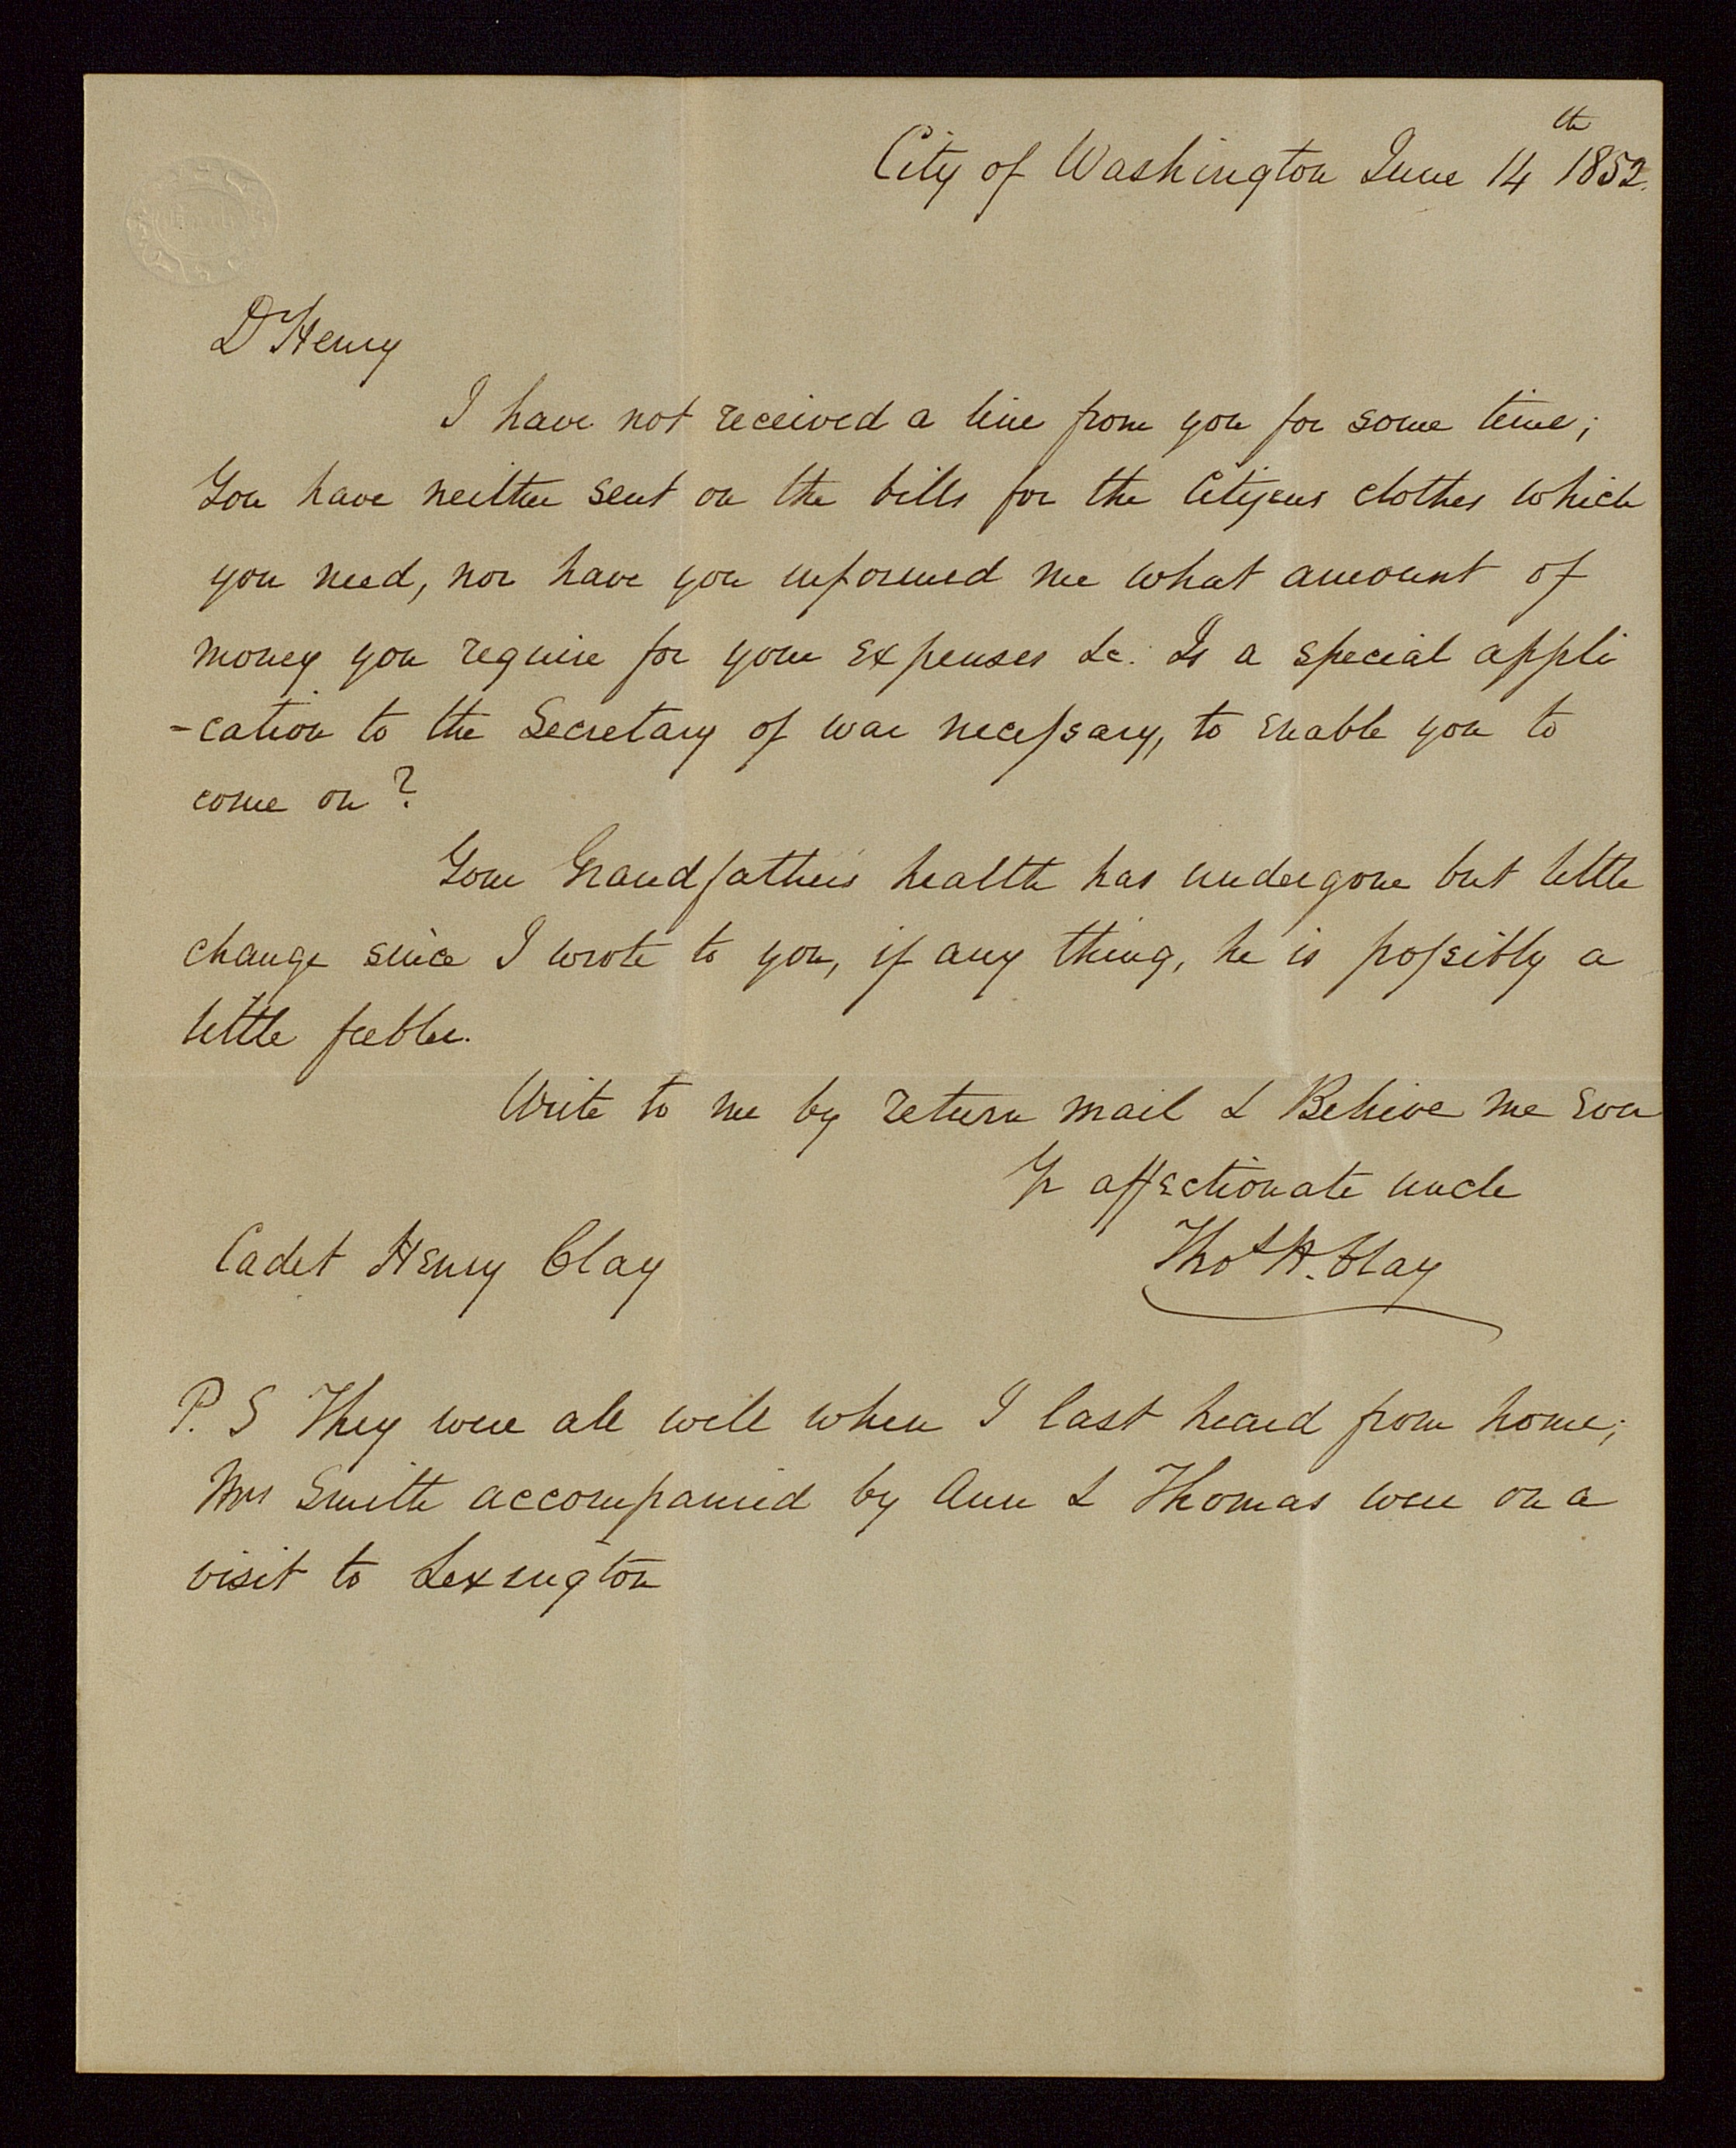 City of Washington June 14th 1852.
D Henry
I have not received a line from you for some time;
You have neither sent on the bills for the Citizens clothes which
you need, nor have you informed me what amount of
money you require for your expenses &c. Is a special appli
-cation to the Secretary of war necessary, to enable you to
come on?
Your Grandfathers health has undergone but little
change since I wrote to you, if any thing, he is possibly a
little feebler.
Write to me by return mail & Believe me ever
Yr affectionate uncle
Cadet Henry Clay
Thos H. Clay
P. S They were all well when I last heard from home;
Mrs Smith accompanied by Ann & Thomas were on a
visit to Lexington